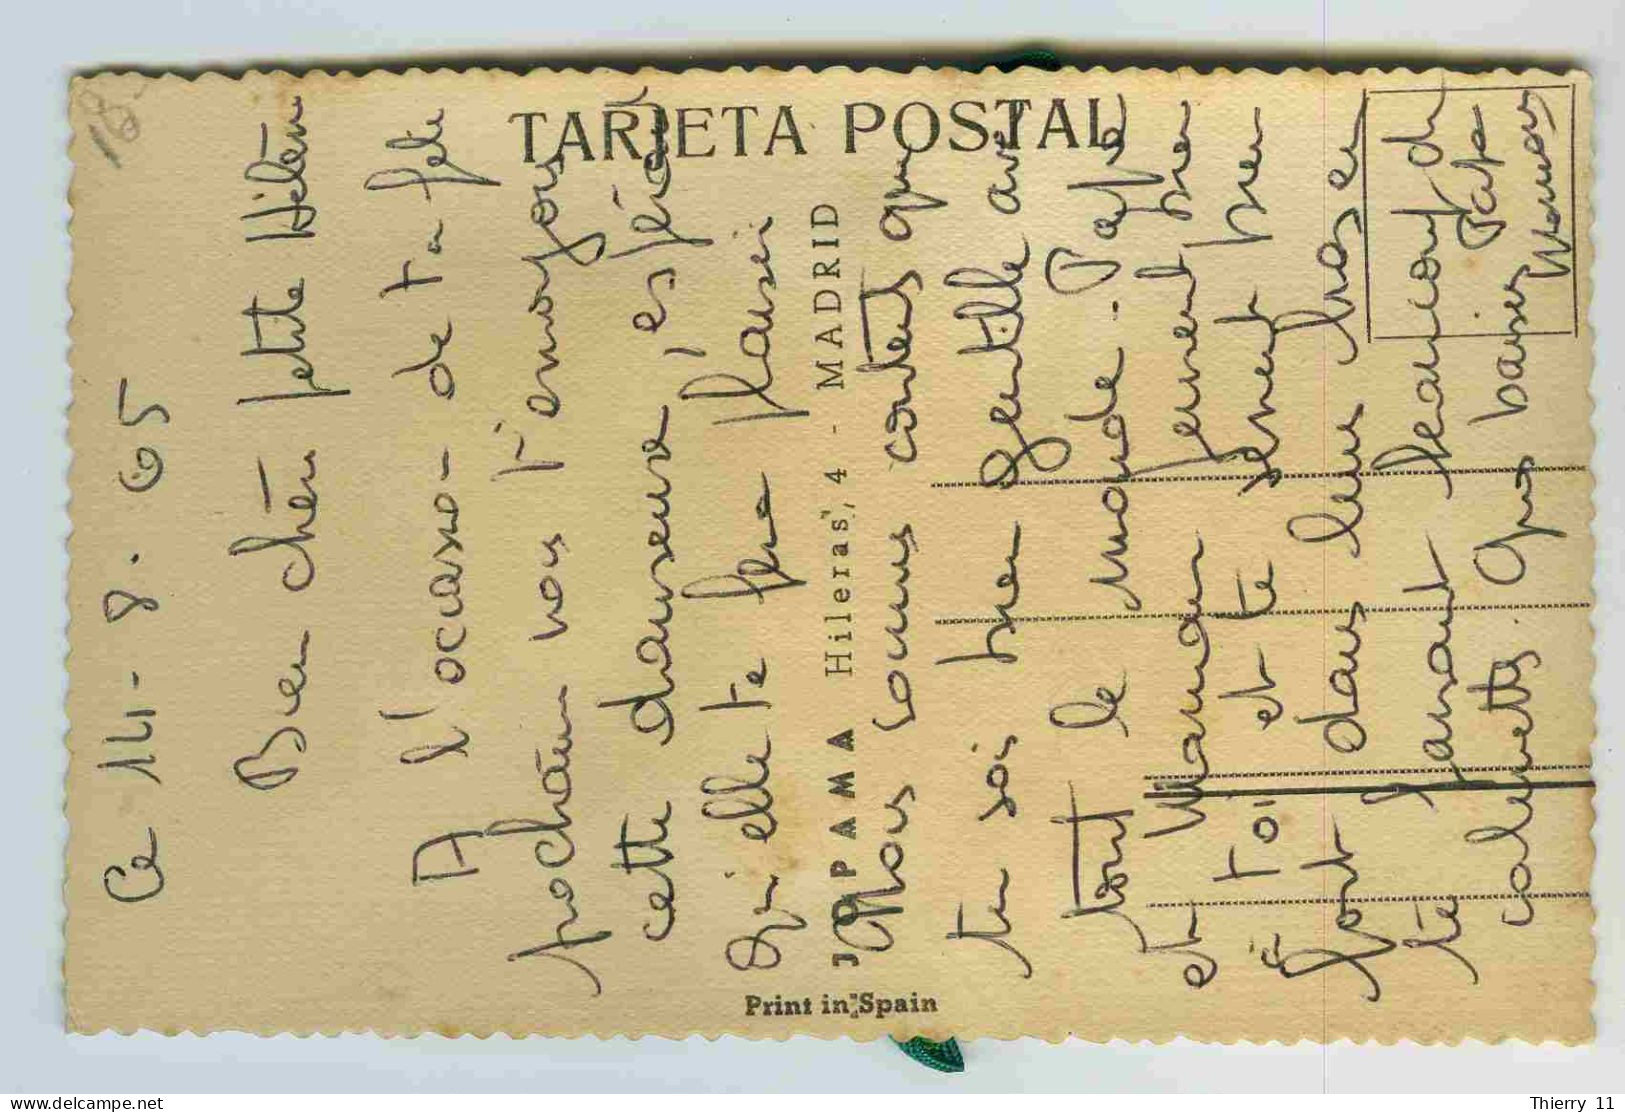 18
TARJETA POSTAL
JOPAMA Hileras, 4 - MADRID
Print in Spain
Ce 14-8.65
Bien chère petite Hélène
A l'occasion de ta fête
prochaine nous t'envoyons
cette danseuse, espérant
qu'elle te fera plaisir
Nous sommes contents que
tu sois bien gentille avec
tout le monde. Papa
et Maman pensent bien
à toi et te serrent bien
fort dans leurs bras en
te faisant beaucoup de
Gros baisers Papa
Maman
delcampe.net
Thierry 11